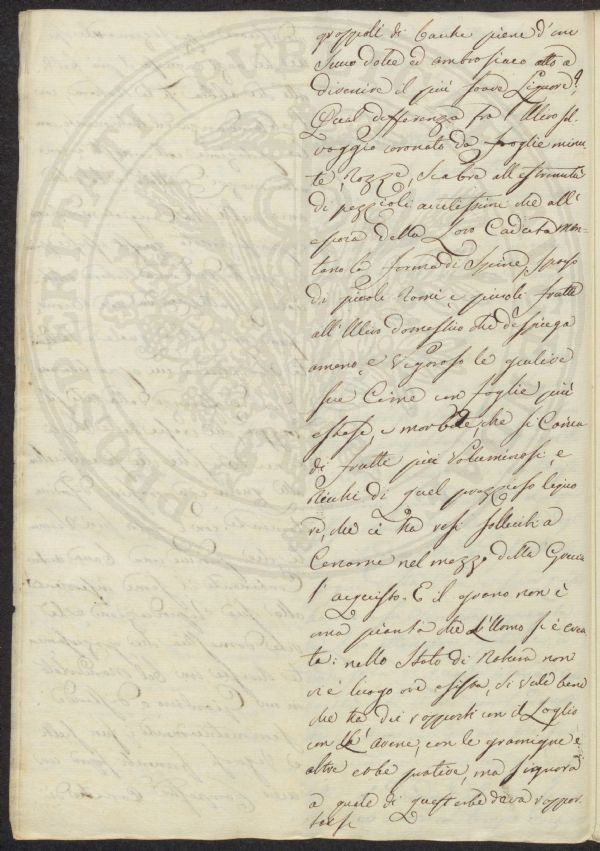 groppoli di bache piene d'un
Suno dolce ed ambrosiaco atto a
divenire il più soave Liquore?
Qual differenza fra l'Ulivo sel
vaggio coronato da foglie minu
te, Rozze, Scabre all'estremità
di pezzioli acutissimi che all'
epoca della Loro Caduta men-
tano la forma di Spine, sparso
di piccoli Romi, e piccoli frutti
all'Ulivo domestico che dispiega
ameno, e Vigoroso le gulive
sue Cime con foglie più
estese, e morbide, che si Carica
di frutti più Voluminosi, e
Ricchi di quel prezzioso liquo
re, che ci ha resi solleciti a
Cercarne nel mezzo della Grecia
l'acquisto. E il grano non è
una pianta che L'Uomo si è crea
ta: nello Stato di Natura non
vi è luogo ove esista, Si vede bene
che ha dei rapporti con il Loglio
con le Avene, con le gramigne e
altre erbe prative, ma s'ignora
a quale di quest'erbe deva rappor
tarsi